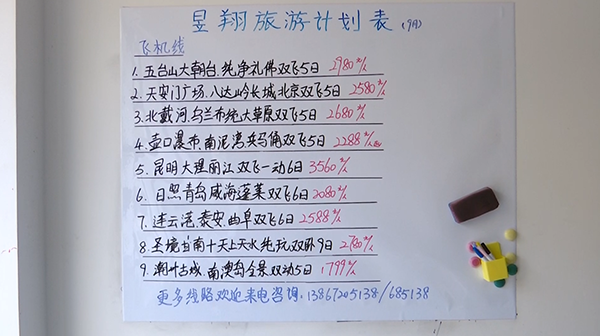 昱翔旅游计划表(9月)
飞机线
1. 五台山大朝台.纯净礼佛双飞5日 2980元/人
2. 天安门广场.八达岭长城.北京双飞5日 2580元/人
3. 北戴河.乌兰布统大草原双飞5日 2680元/人
4. 壶口瀑布.南泥湾.兵马俑双飞5日 2288元/人
5. 昆明大理丽江双飞一动6日 3560元/人
6. 日照青岛威海蓬莱双飞6日 2080元/人
7. 连云港.泰安.曲阜双飞6日 2588元/人
8. 圣境甘南十天上天水纯玩双卧9日 2780元/人
9. 潮州古城.南澳岛全景双动5日 1799元/人
更多线路欢迎来电咨询:13867205138/685138